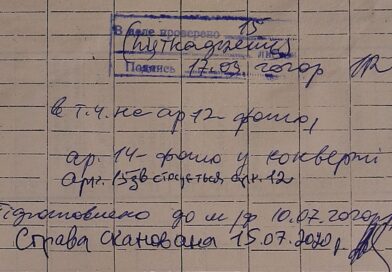 В деле проверено 15
листов
Подпись 17.03.
в т.ч. на ар 12 - фото,
ар. 14 - фото у конверті
арк. 15 зв стосується арк. 12
Підготовлено до м/ф 10.07.
Справа сканована 15.07.2020р